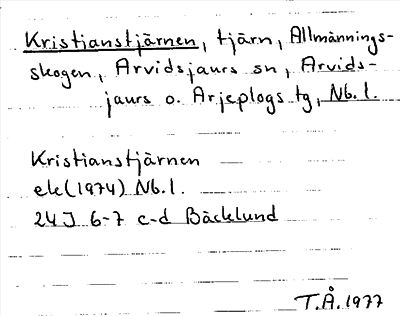 Kristianstjärnen, tjärn, Allmännings-
skogen, Arvidsjaurs sn, Arvids-
jaurs o. Arjeplogs tg, Nb. l.
Kristianstjärnen
ek (1974) Nb. l.
24J 6-7 c-d Bäcklund
T.Å. 1977